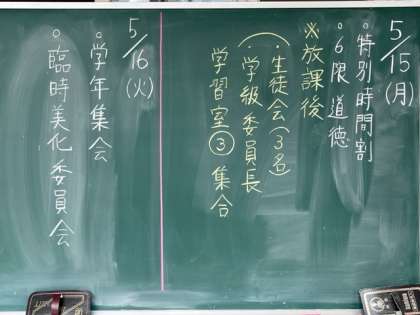 5/15(月)
○特別時間割
○6限 道徳
※放課後
・生徒会(3名)
・学級委員長
学習室③集合
5/16(火)
○学年集会
○臨時美化委員会